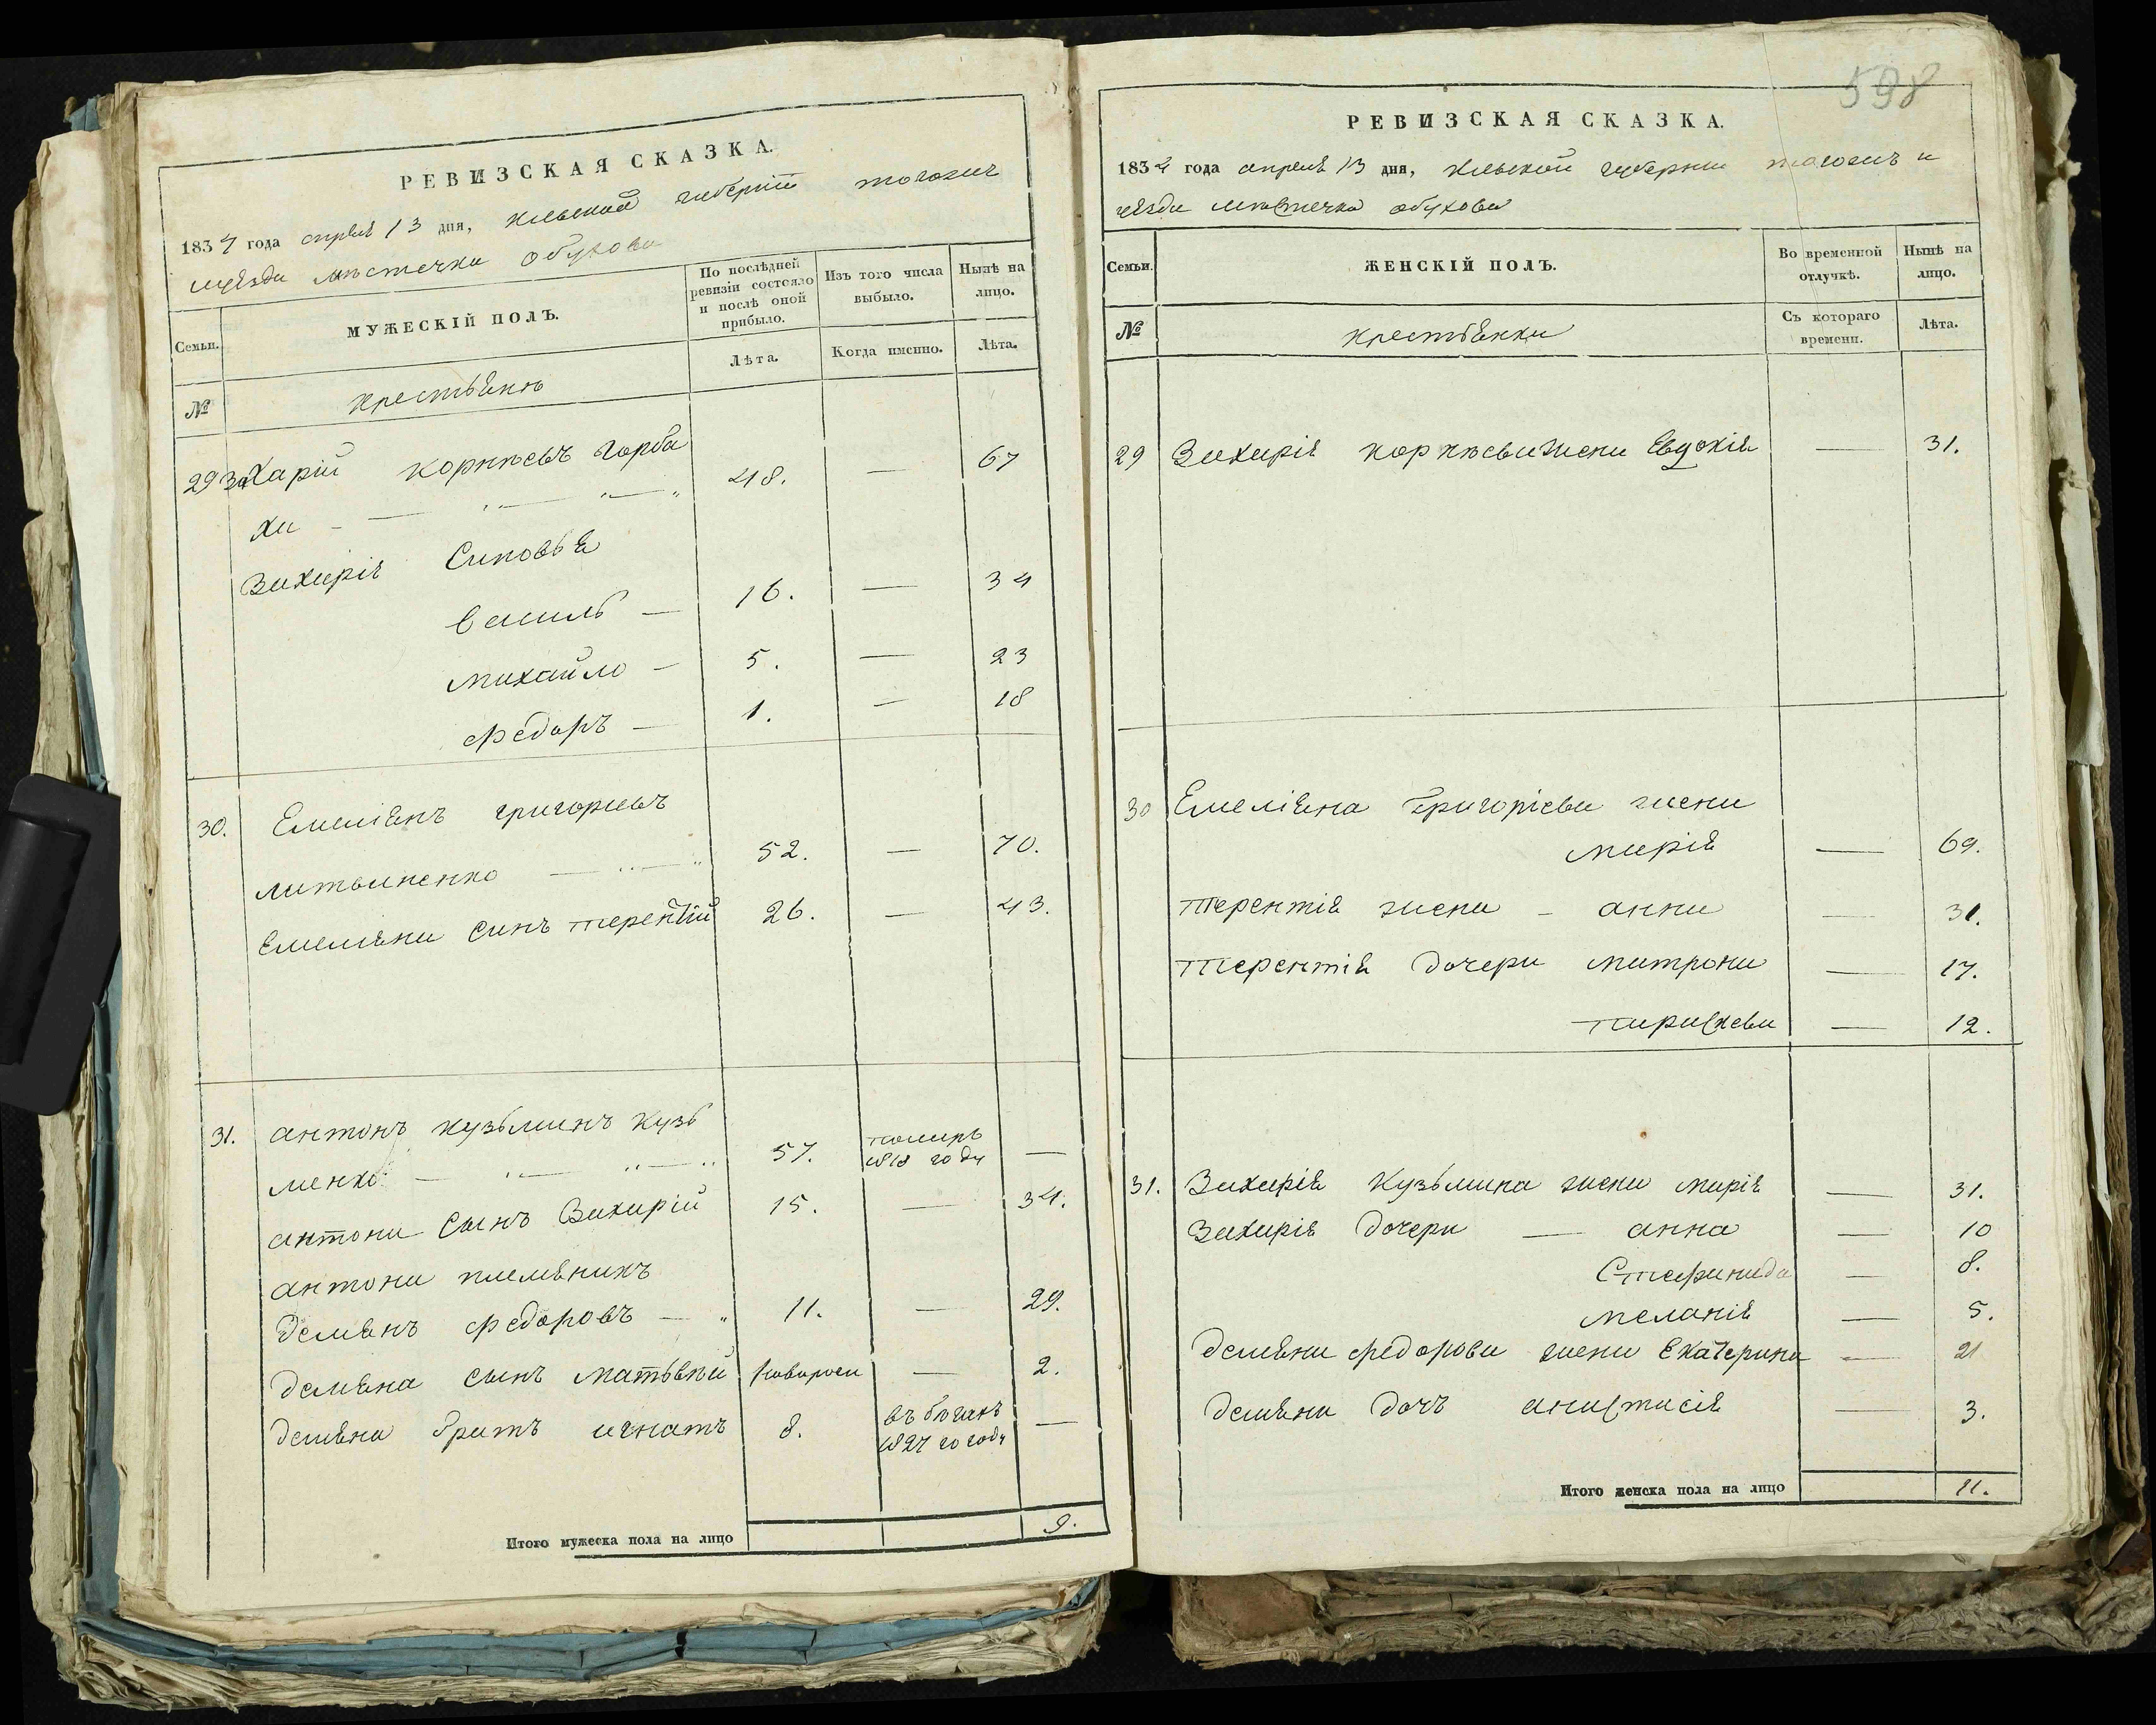 РЕВИЗСКАЯ СКАЗКА.
1834 года апреля 13 дня, Киевской губернии тогожъ
уѣзда мѣстечка Обухова
Семьи.
МУЖЕСКІЙ ПОЛЪ.
По послѣдней ревизіи состояло и послѣ оной прибыло.
Изъ того числа выбыло.
Нынѣ на лицо.
№
крестьяне
Лѣта.
Когда именно.
Лѣта.
29 Захарій Корнѣевъ Горба
ха 48. — 67
Захарія Синовья
Василь — 16. — 34
Михайло — 5. — 23
Федоръ — 1. — 18
30. Емеліянъ Григорьевъ
Литвиненко 52. — 70.
Емеляна синъ Терентій 26. — 43.
31. Антонъ Кузьминъ Кузь
менко 57. помиръ 1818 году —
Антона Сынъ Захарій 15. — 34.
Антона племяникъ
Демянъ Федоровъ — 11. — 29.
Демяна сынъ Матвѣй новорож — 2.
Демяна братъ Игнатъ 8. въ бѣгахъ 1827 году —
Итого мужеска пола на лицо 9.
598
РЕВИЗСКАЯ СКАЗКА.
1834 года апреля 13 дня, Киевской губернии тогожъ и
уѣзда мѣстечка Обухова
Семьи.
ЖЕНСКІЙ ПОЛЪ.
Во временной отлучкѣ.
Нынѣ на лицо.
№
крестьянки
Съ котораго времени.
Лѣта.
29 Захарія Корнѣева жена Евдокія — 31.
30 Емеліяна Григоріева жена
Марія — 69.
Терентія жена – Анна — 31.
Терентія дочери Матрона — 17.
Парискева — 12.
31. Захарія Кузьмина жена Марія — 31.
Захарія дочери — Анна — 10
Стефанида — 8.
Меланія — 5.
Демяна Федорова жена Екатерина — 21
Демяна дочъ Анастасія — 3.
Итого женска пола на лицо 11.